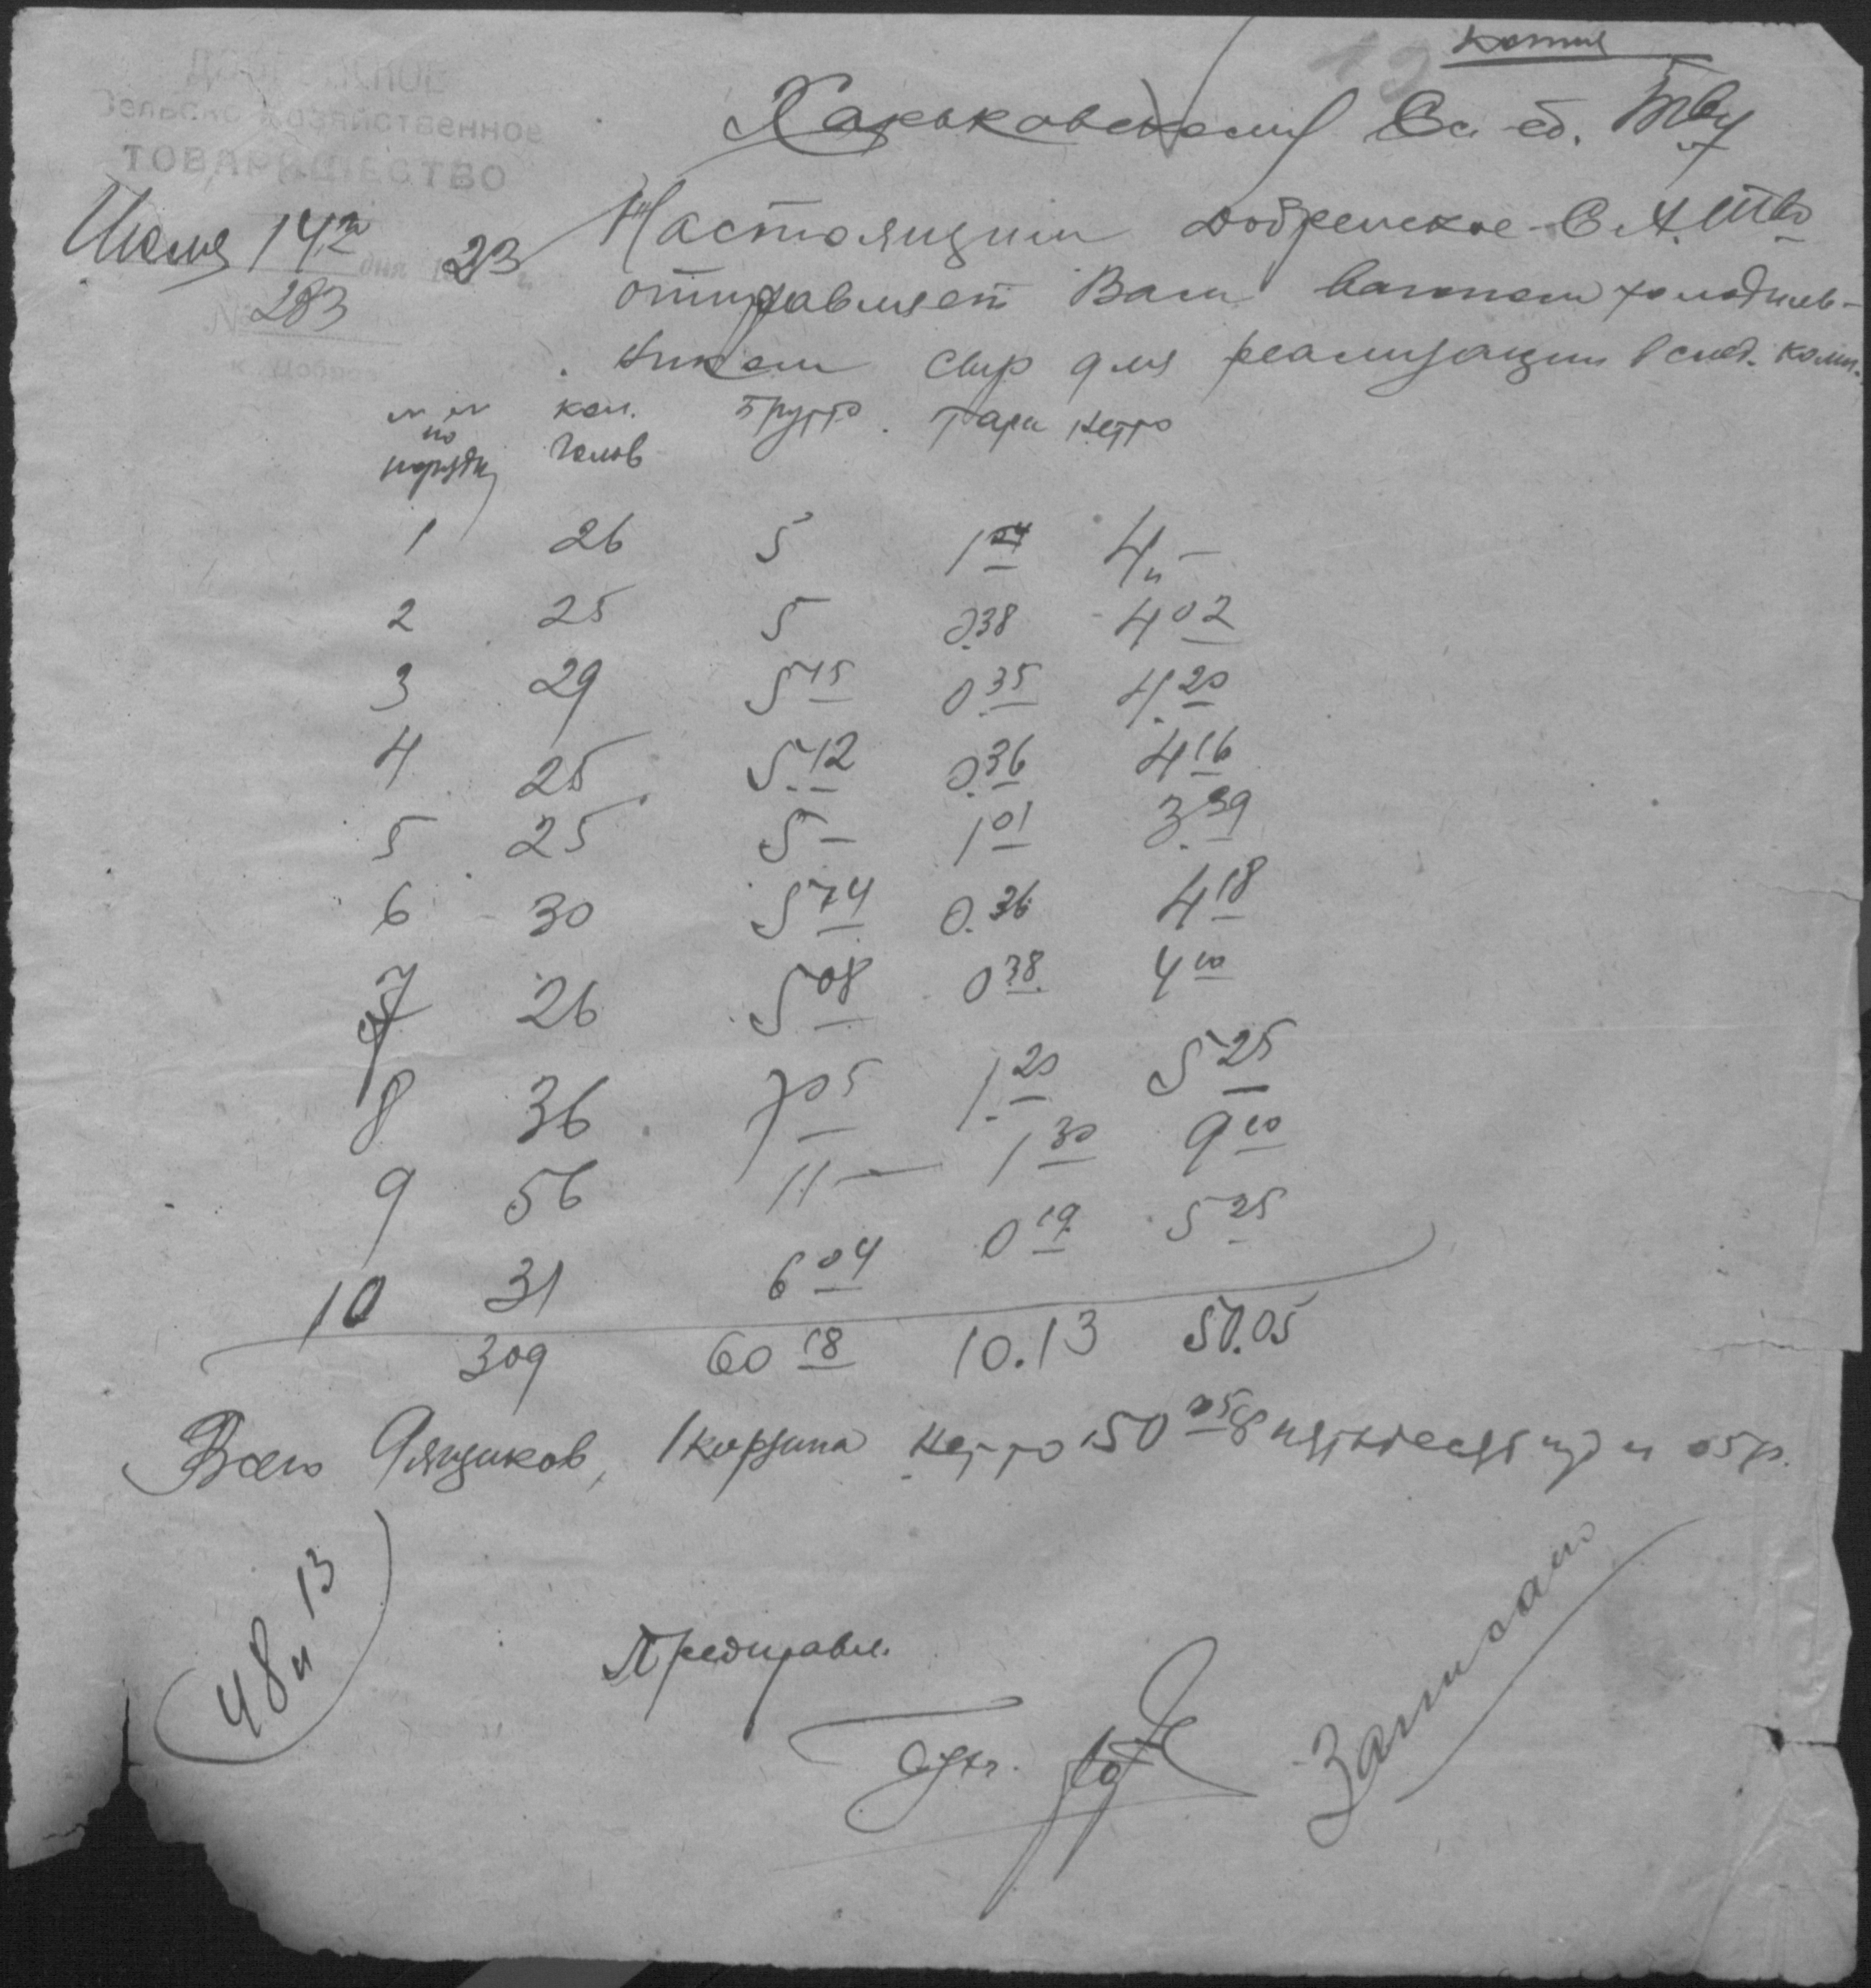 копия
19
ДОБРЕНСКОЕ
Сельско Хозяйственное
ТОВАРИЩЕСТВО
Харьковскому Тву
Июля 14го дня 1923 г.
№ 283
Настоящим Добренское С.Х. Тво
отправляет Вам вагоном холодиль-
ником сыр для реализации в след. колич.
№ № по порядку кол. голов Брутто Тара Нетто
1 26 5 1 04 4 п –
2 25 5 0.38 4 02
3 29 5 15 0.35 4.20
4 25 5.12 0.36 4 16
5 25 5 – 1 01 3.39
6 30 5 14 0.36 4 18
7 26 5 08 0 38 4 10
8 36 7 05 1.20 5 25
9 56 11 – 1 30 9 10
10 31 6 04 0 19 5 25
309 60 18 10.13 50.05
Всего 9 ящиков, 1 корзина нетто 50 05 пятьдесят пуд и 05 ф.
48 п 13
Предправл.
Записано